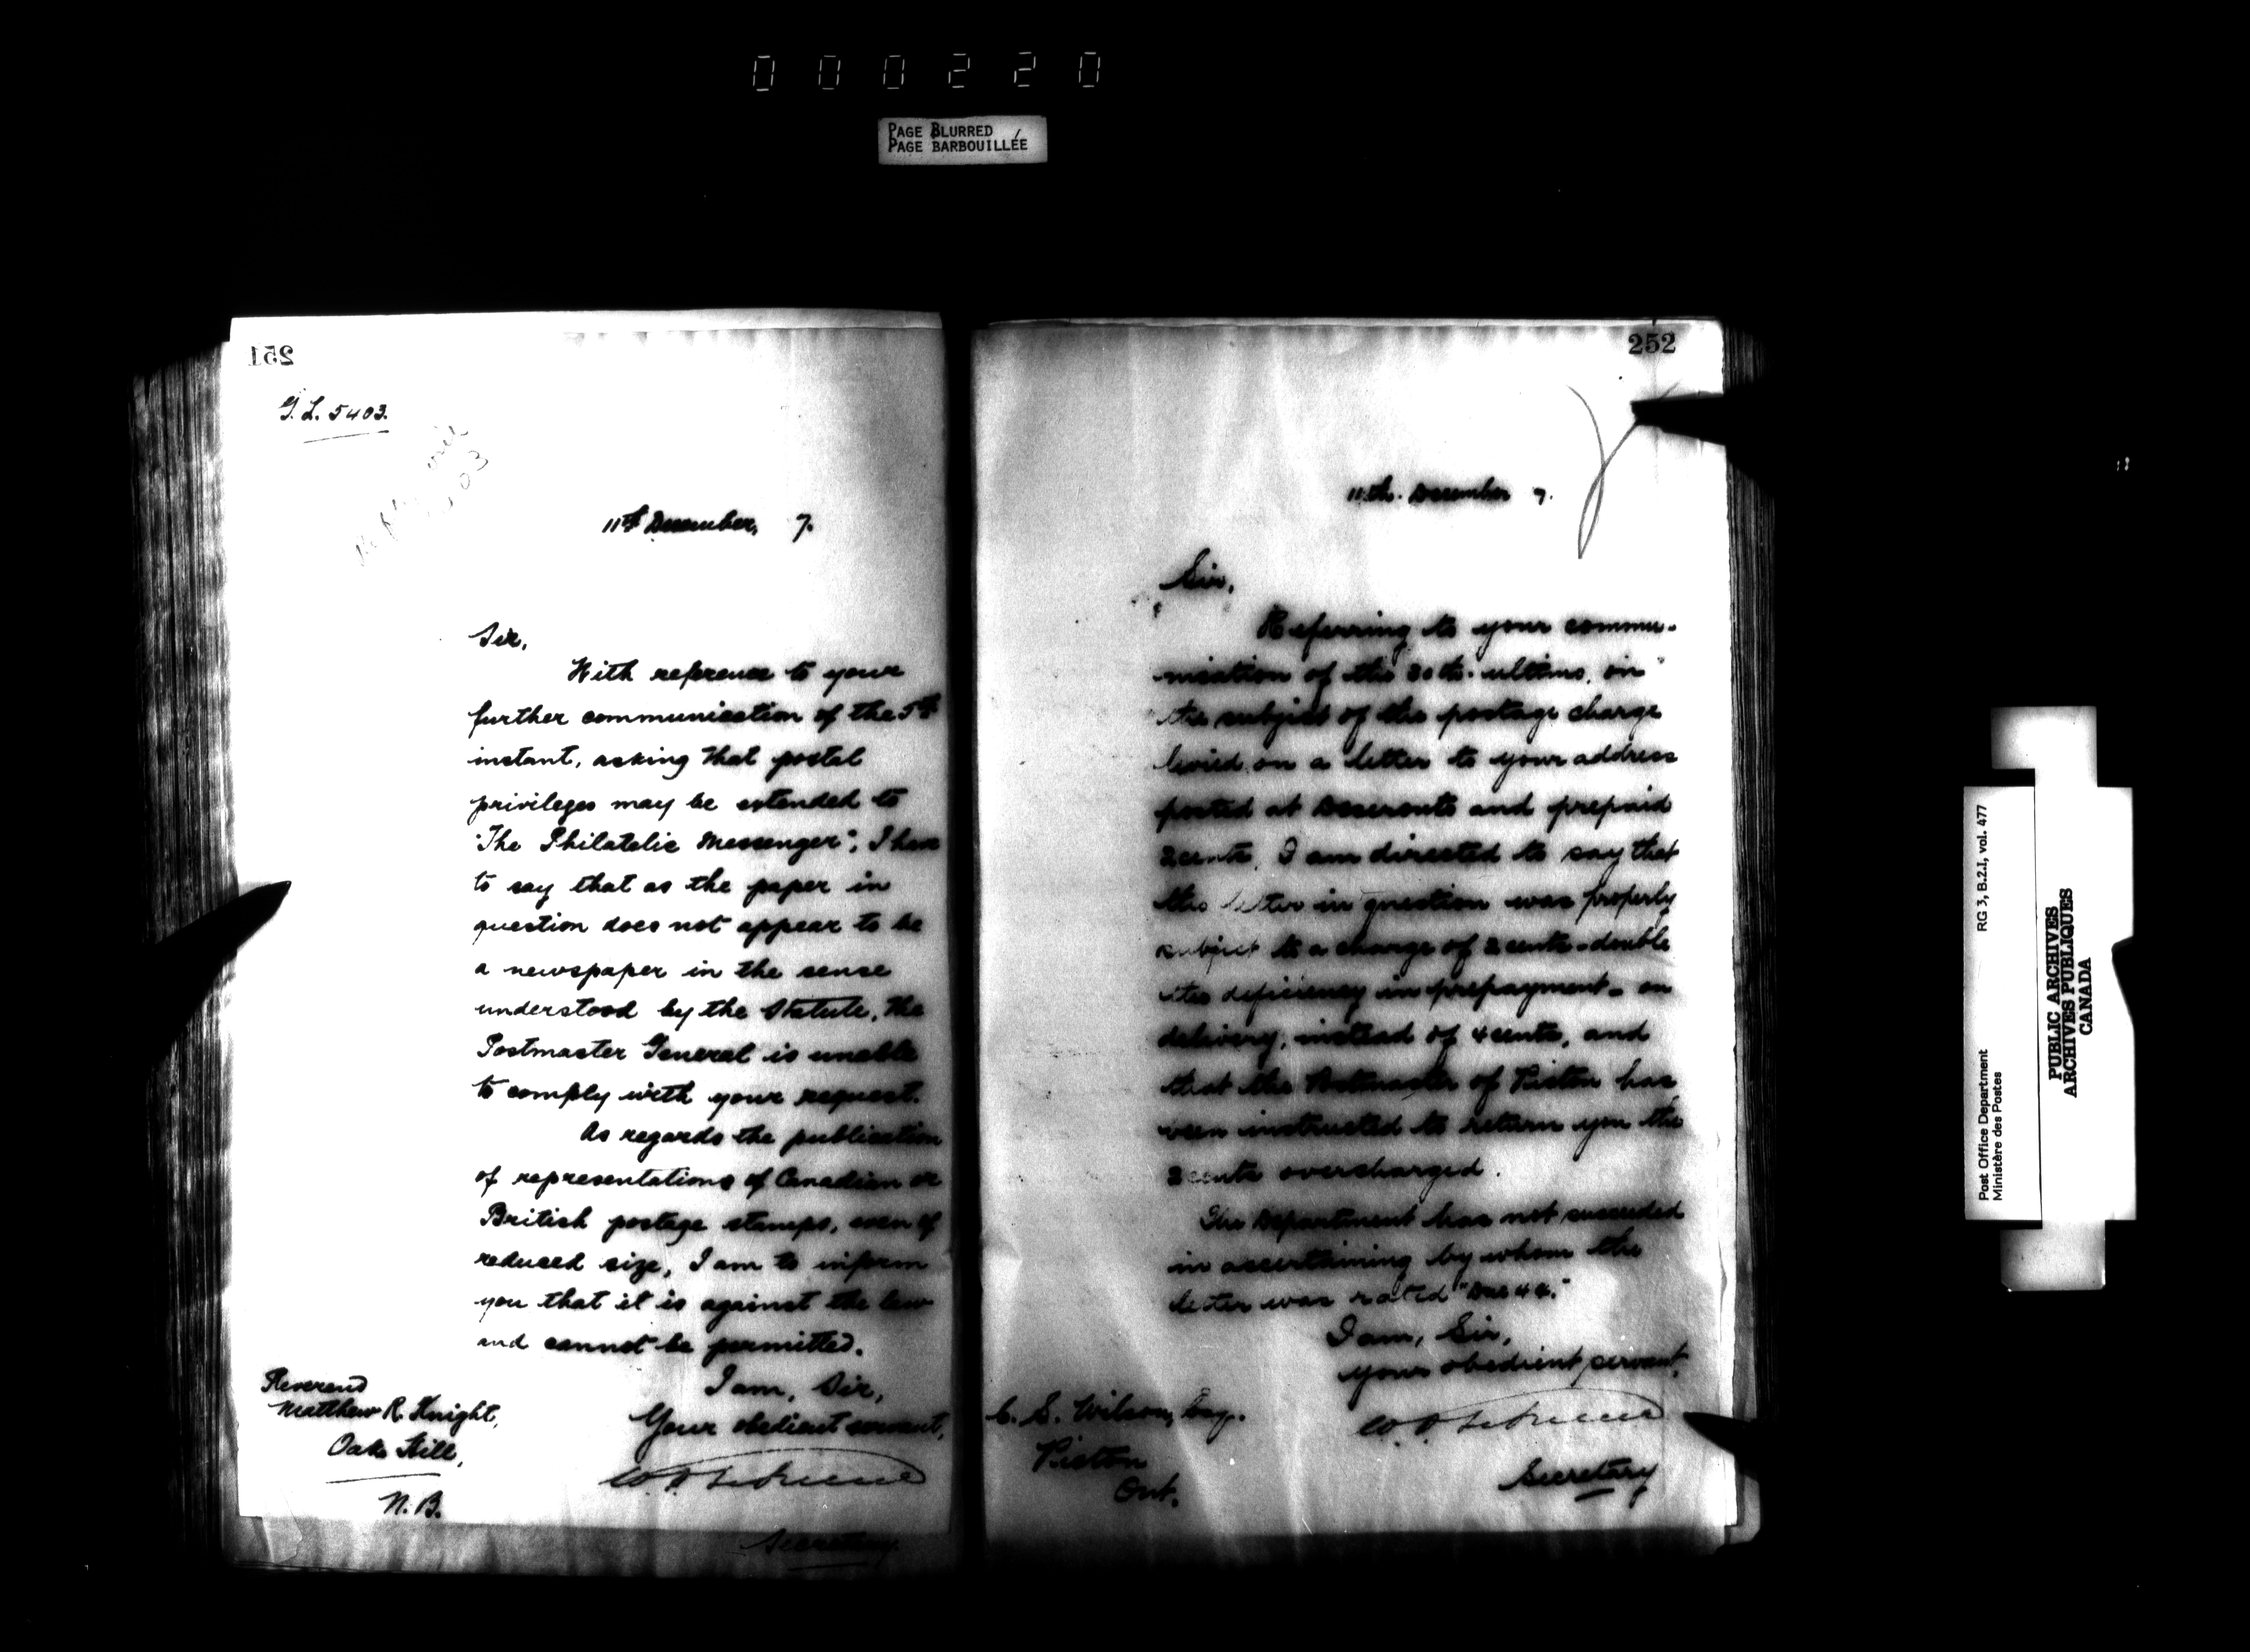 000220
PAGE BLURRED
PAGE BARBOUILLÉE
251
G.L. 5403.
11th December, 7.
Sir,
With reference to your
further communication of the 5th
instant, asking that postal
privileges may be extended to
"The Philatelic Messenger", I have
to say that as the paper in
question does not appear to be
a newspaper in the sense
understood by the Statute, the
Postmaster General is unable
to comply with your request.
As regards the publication
of representations of Canadian or
British postage stamps, even of
reduced size, I am to inform
you that it is against the law
and cannot be permitted.
I am, Sir,
Your obedient servant,
Secretary
Reverend
Matthew R. Knight,
Oak Hill,
N. B.
252
11th. December 7.
Sir,
Referring to your commu-
nication of the 30th. ultimo, on
the subject of the postage charge
levied on a letter to your address
posted at Deseronto and prepaid
2 cents, I am directed to say that
the letter in question was properly
subject to a charge of 2 cents - double
the deficiency in prepayment - on
delivery, instead of 4 cents, and
that the Postmaster of Picton has
been instructed to return you the
2 cents overcharged.
The Department has not succeeded
in ascertaining by whom the
letter was rated "Due 4 c."
I am, Sir,
your obedient servant,
Secretary
C. S. Wilson, Esq.
Picton
Ont.
Post Office Department
Ministère des Postes
RG 3, B.2.I, vol. 477
PUBLIC ARCHIVES
ARCHIVES PUBLIQUES
CANADA